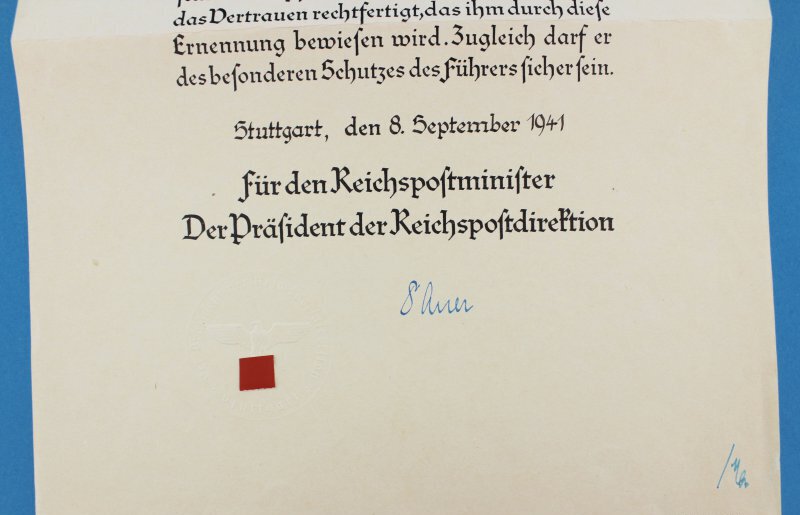 das Vertrauen rechtfertigt, das ihm durch diese
Ernennung bewiesen wird. Zugleich darf er
des besonderen Schutzes des Führers sicher sein.
Stuttgart, den 8. September 1941
Für den Reichspostminister
Der Präsident der Reichspostdirektion